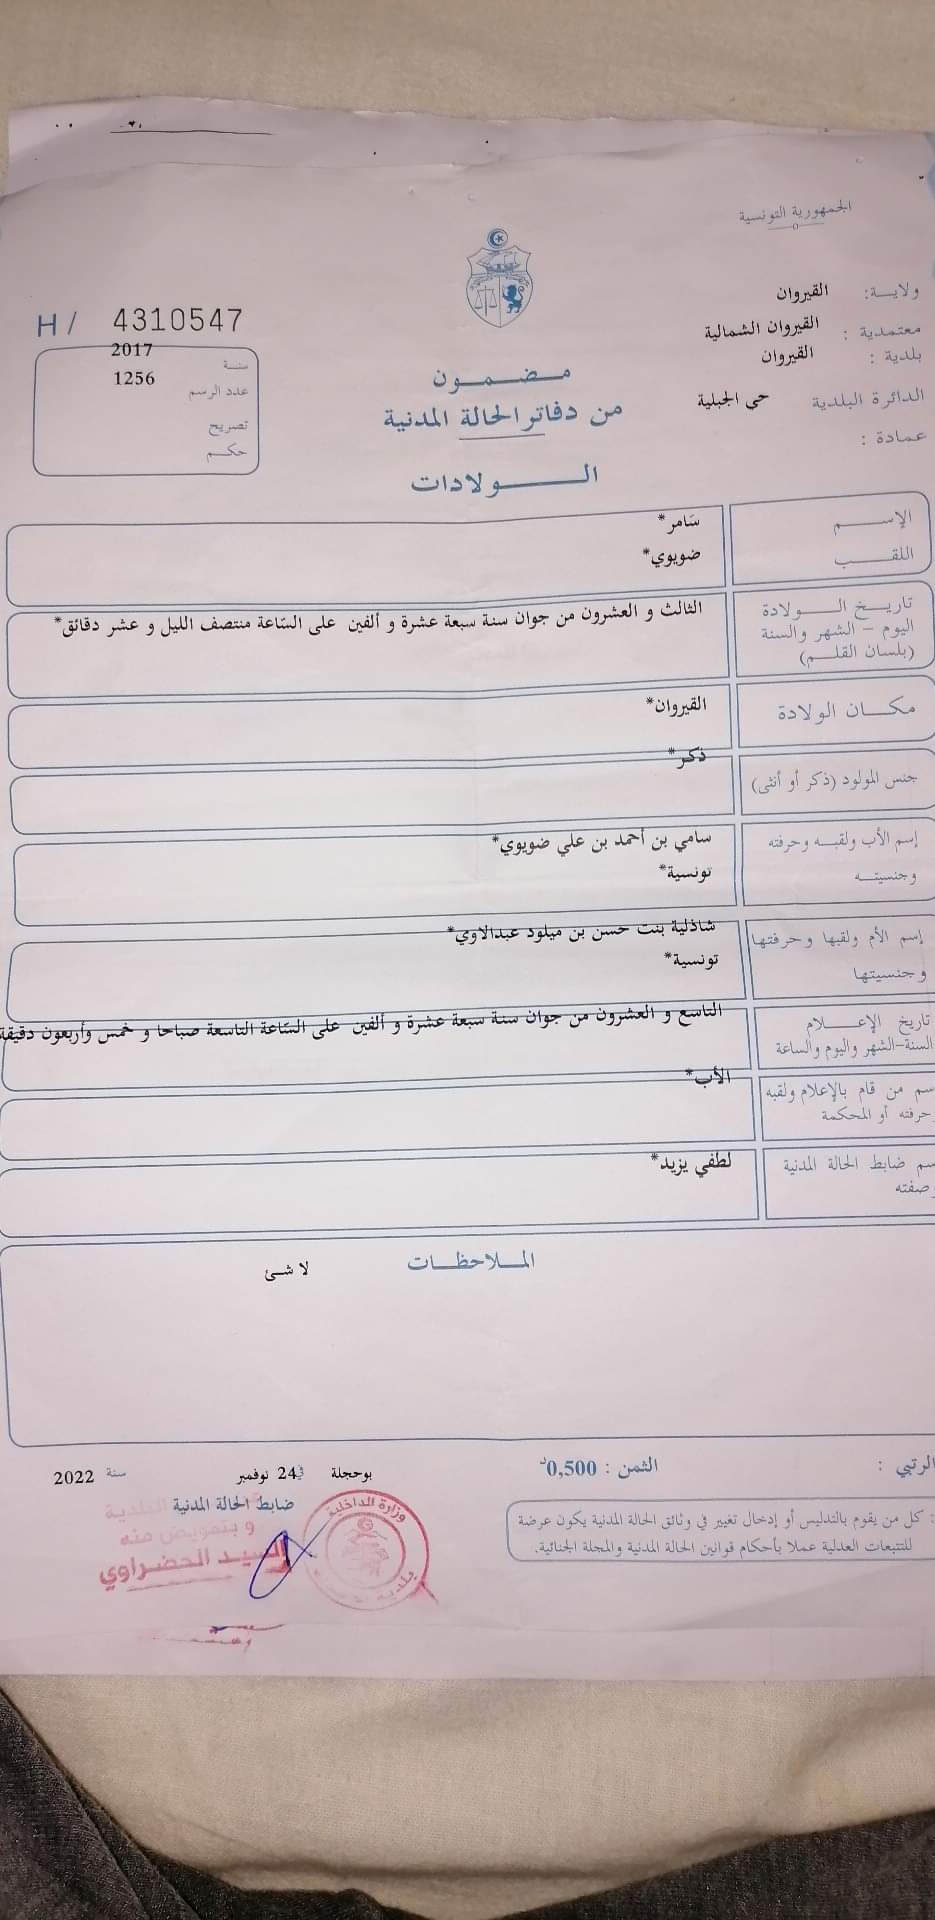 الجمهورية التونسية
ولايـــة: القيروان
معتمدية : القيروان الشمالية
بلدية : القيروان
الدائرة البلدية حي الجبلية
عمادة :
H/ 4310547
سنة 2017
عدد الرسم 1256
تصريح
حكم
مضمون
من دفاتر الحالة المدنية
الولادات
الإسم سَامر*
اللقب ضويوي*
تاريخ الولادة
اليوم – الشهر والسنة
(بلسان القلم)
الثالث و العشرون من جوان سنة سبعة عشرة و ألفين على السّاعة منتصف الليل و عشر دقائق*
مكان الولادة القيروان*
جنس المولود (ذكر أو أنثى) ذكر*
إسم الأب ولقبه وحرفته سامي بن أحمد بن علي ضويوي*
وجنسيته تونسية*
إسم الأم ولقبها وحرفتها شاذلية بنت حسن بن ميلود عبدالاوي*
وجنسيتها تونسية*
تاريخ الإعلام
السنة-الشهر واليوم والساعة
التاسع و العشرون من جوان سنة سبعة عشرة و ألفين على السّاعة التاسعة صباحا و خمس وأربعون دقيقة
سم من قام بالإعلام ولقبه الأب*
حرفته أو المحكمة
سم ضابط الحالة المدنية لطفي يزيد*
صفته
الملاحظات
لا شئ
الرتبي :
الثمن : 0,500د
بوحجلة في 24 نوفمبر سنة 2022
ضابط الحالة المدنية
: كل من يقوم بالتدليس أو إدخال تغيير في وثائق الحالة المدنية يكون عرضة
للتتبعات العدلية عملا بأحكام قوانين الحالة المدنية والمجلة الجنائية.
وزارة الداخلية
بلدية
و بتفويض منه
السيد الخضراوي